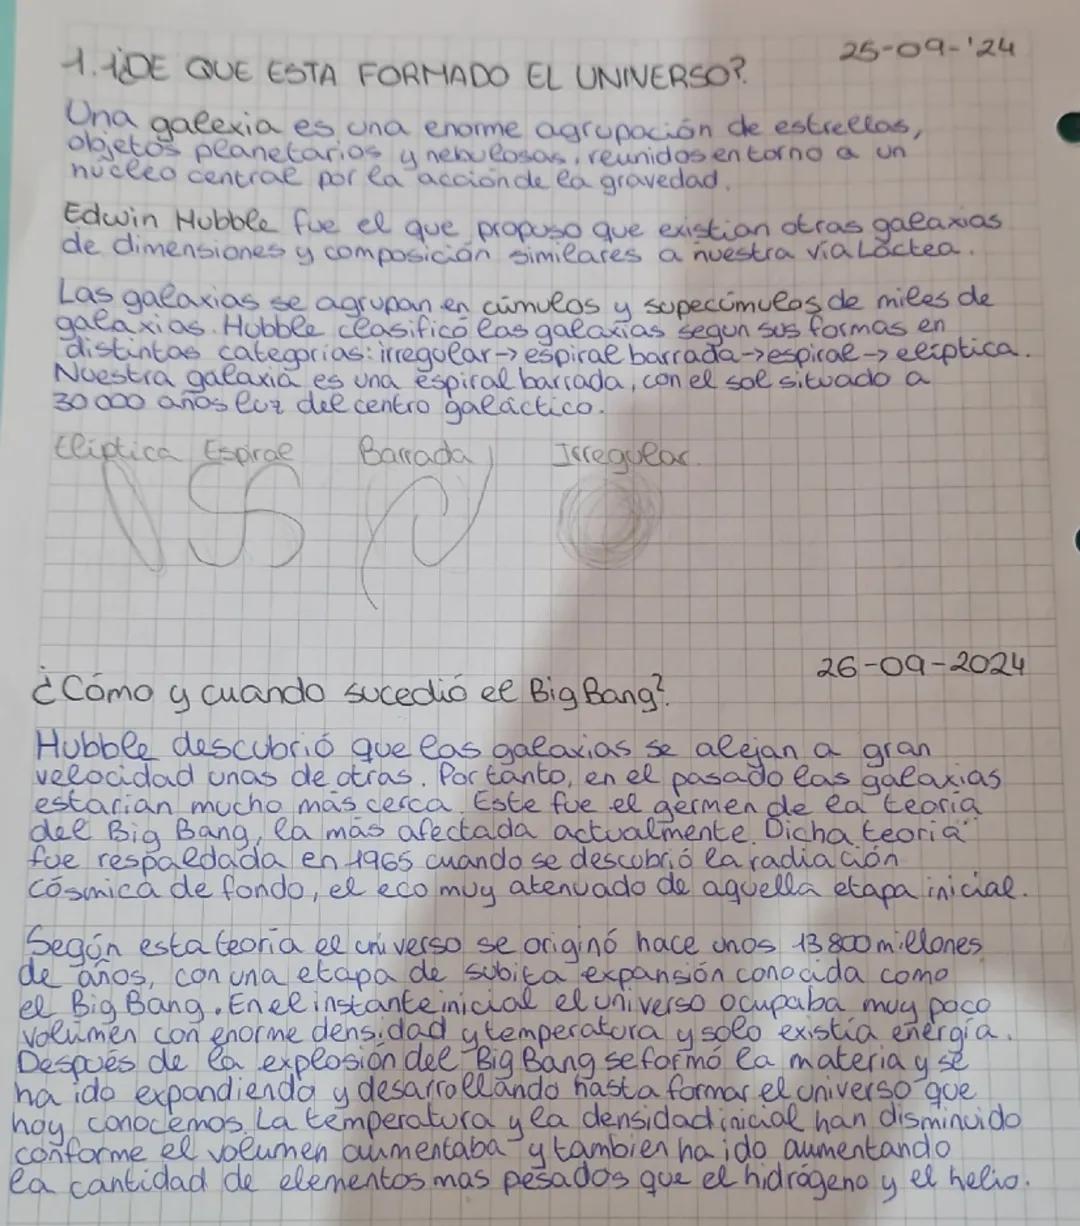 25-09-'24
1.1¿DE QUE ESTA FORMADO EL UNIVERSO?
Una galexia es una enorme agrupación de estrellas,
objetos planetarios y nebulosas, reunidos en torno a un
núcleo central por la acción de la gravedad.
Edwin Hubble fue el que propuso que existian otras galaxias
de dimensiones y composición similares a nuestra vía Láctea.
Las galaxias se agrupan en cúmulos y supercúmulos de miles de
galaxias. Hubble clasificó las galaxias segun sus formas en
distintas categorías: irregular -> espiral barrada -> espiral -> elíptica.
Nuestra galaxia es una espiral barrada, con el sol situado a
30000 años luz del centro galáctico.
Elíptica Espiral Barrada Irregular.
26-09-2024
¿Cómo y cuando sucedió el Big Bang?
Hubble descubrió que las galaxias se alejan a gran
velocidad unas de otras. Por tanto, en el pasado las galaxias
estarían mucho más cerca. Este fue el germen de la teoría
del Big Bang, la más afectada actualmente. Dicha teoría
fue respaldada en 1965 cuando se descubrió la radiación
cósmica de fondo, el eco muy atenuado de aquella etapa inicial.
Según esta teoría el universo se originó hace unos 13800 millones
de años, con una etapa de súbita expansión conocida como
el Big Bang. En el instante inicial el universo ocupaba muy poco
volumen con enorme densidad y temperatura y solo existía energía.
Después de la explosión del Big Bang se formó la materia y se
ha ido expandiendo y desarrollando hasta formar el universo que
hoy conocemos. La temperatura y la densidad inicial han disminuido
conforme el volumen aumentaba y tambien ha ido aumentando
la cantidad de elementos mas pesados que el hidrógeno y el helio.